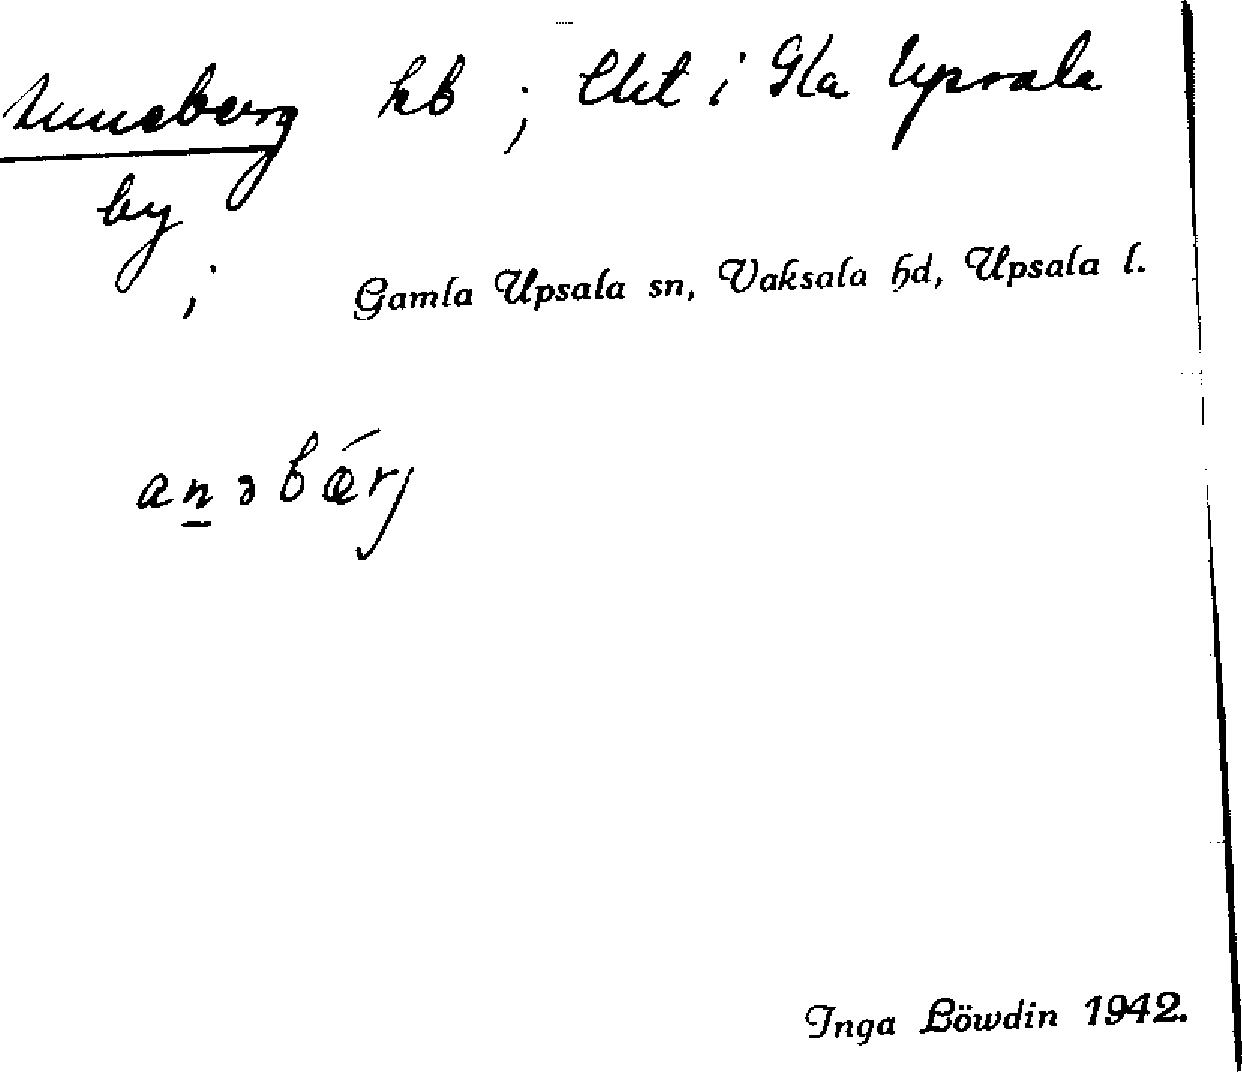 Anneberg hb ; i Gla Upsala
by ;
Gamla Upsala sn, Vaksala hd, Upsala l.
aṉəbǽrj
Inga Löwdin 1942.